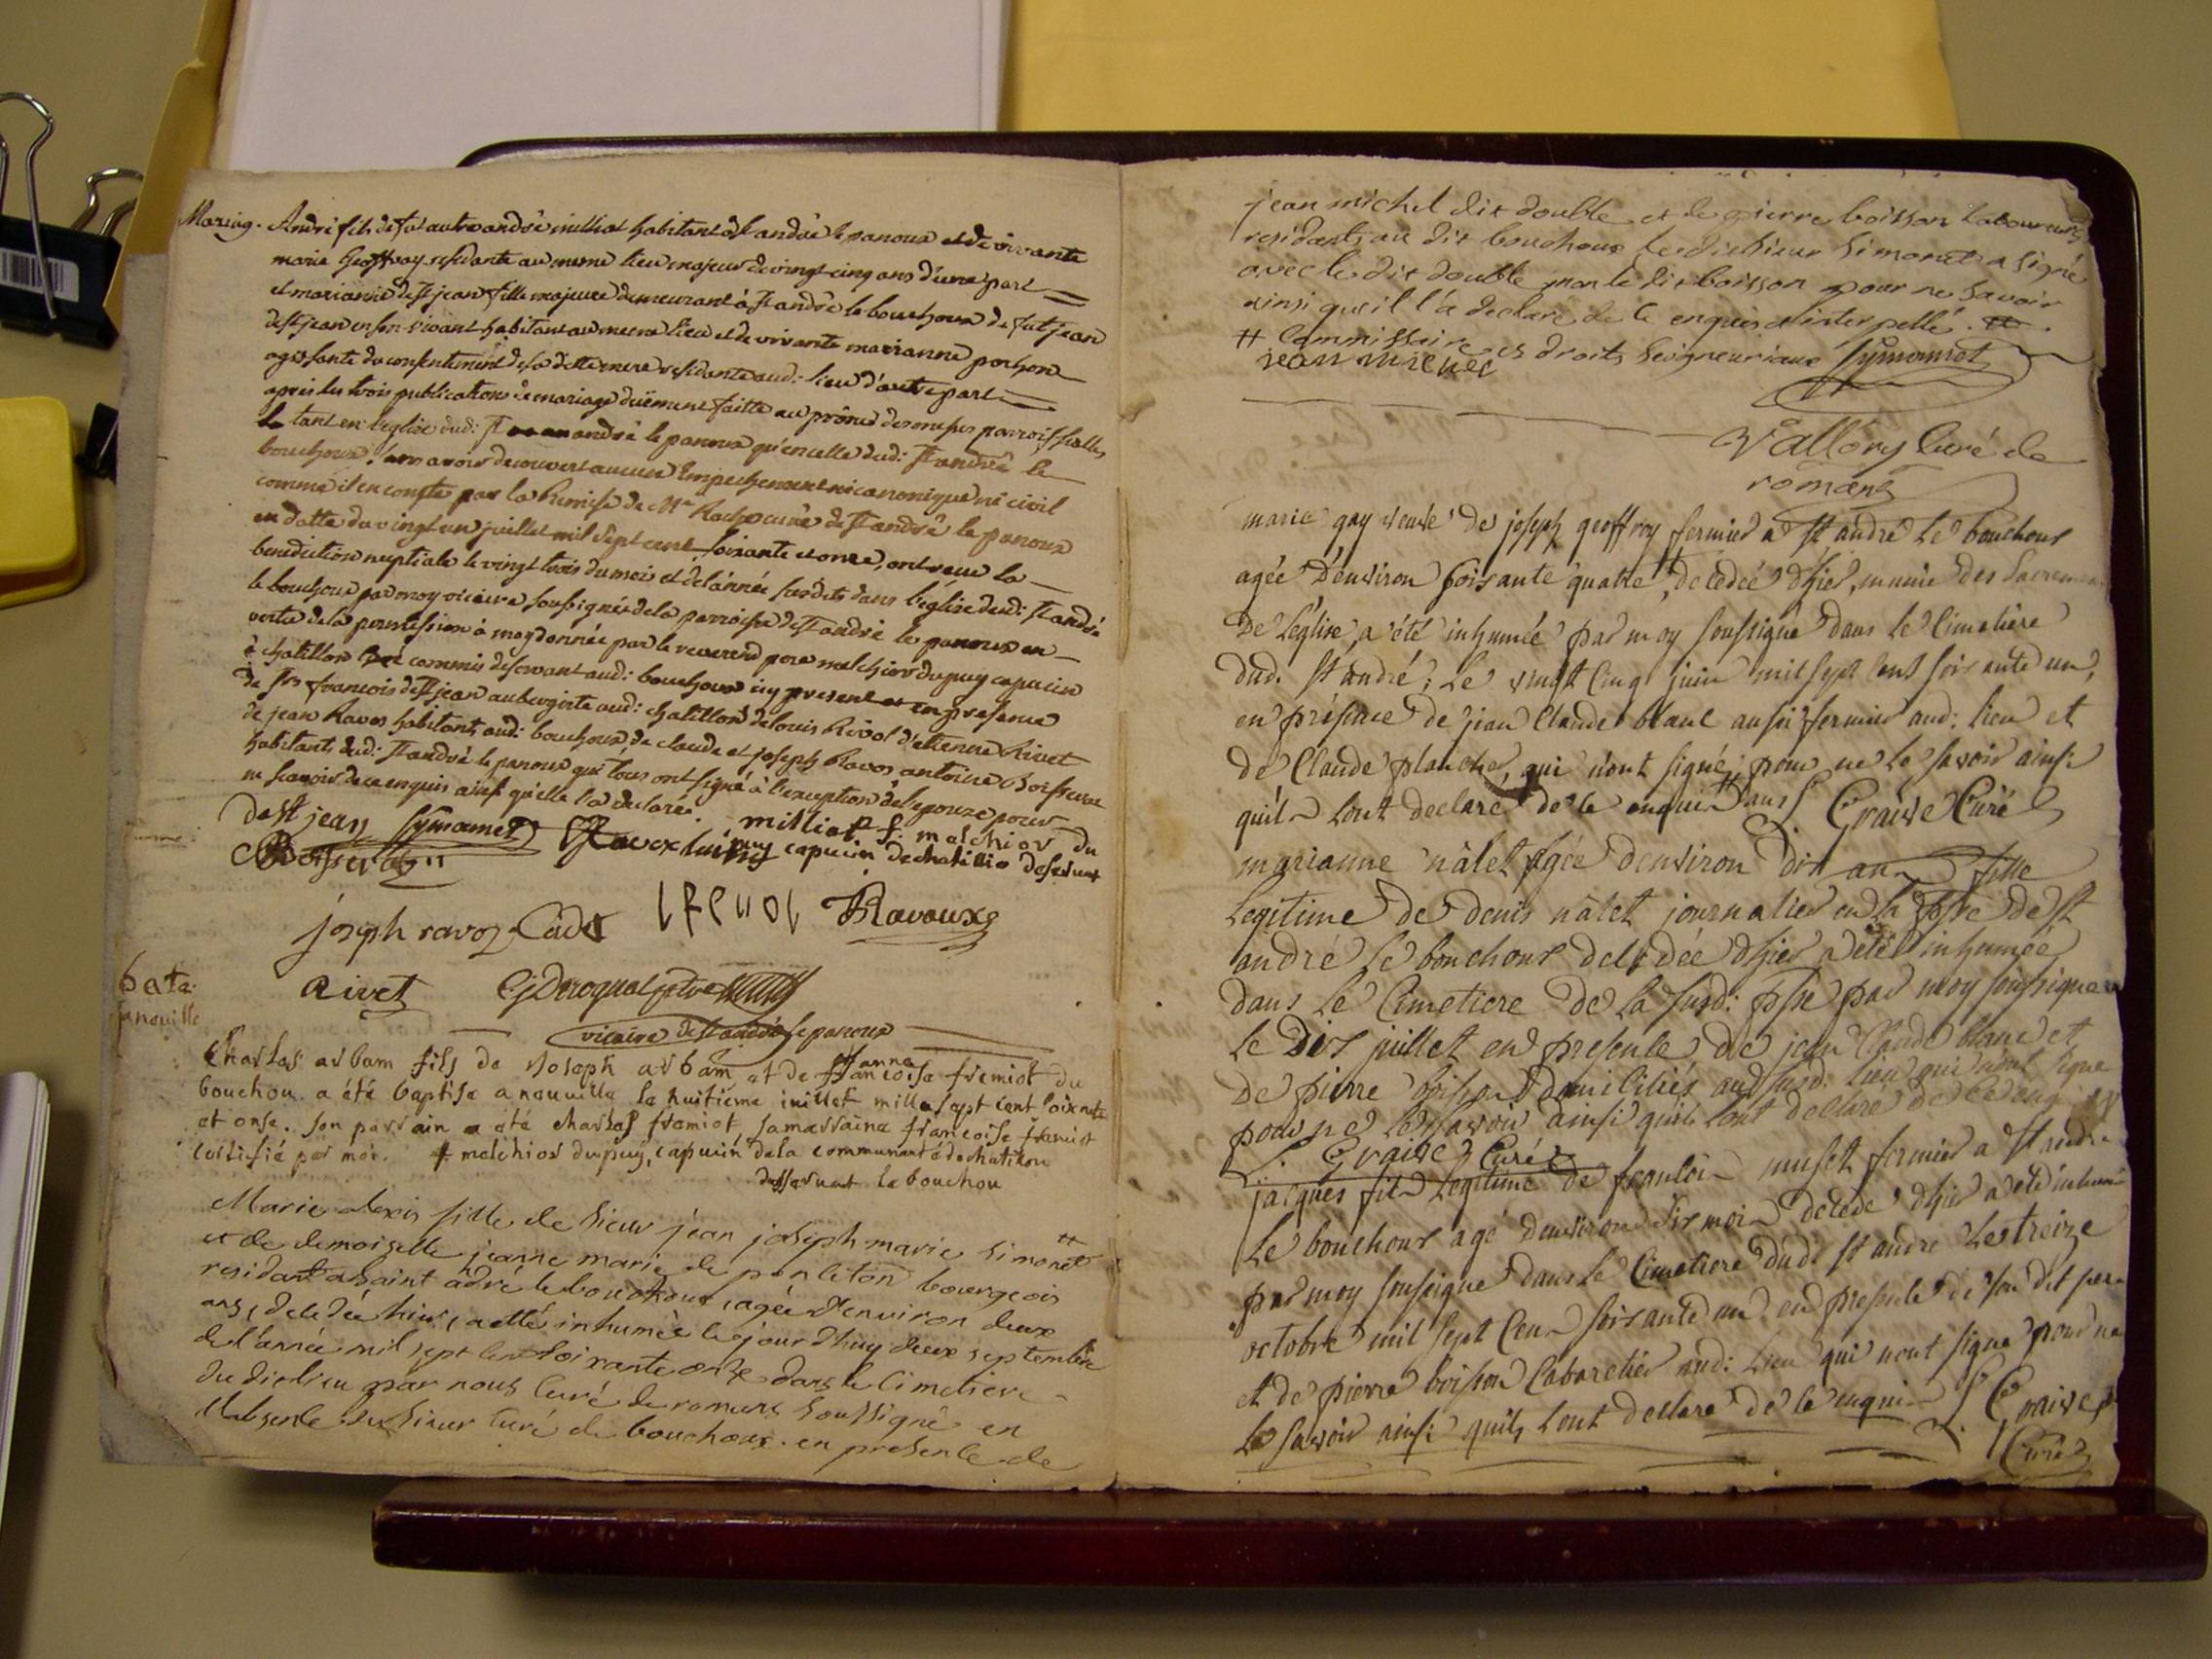 Mariag. André fils de fût autre andré milliat habitant à St andré le panoux et de vivante
marie Geoffray residante au meme lieu majeur de vingt cinq ans d'une part
et marianne de St jean fille majeure demeurant à St andré le bouchoux de fut jean
de St jean en son vivant habitant au meme lieu et de vivante marianne pochon
agissante du consentement de sa ditte mere residante aud: lieu d'autre part
après les trois publications de mariage duëment faitte au prône des messes parroissialles
tant en l'eglise dud: St andré le panoux qu'en celle dud: St andré le
bouchoux sans avoir decouvert aucun Empechement ni canonique ni civil
comme il en conste par la Remise de Mre Roch curé de St andré le panoux
en datte du vingt un juillet mil sept cent soixante et onze, ont reçu la
benediction nuptiale le vingt trois du mois et de l'année susdits dans l'église dud: St andré
le bouchoux par moy vicaire soussigné de la parroisse de St andré le panoux en
vertu de la permission à moy donnée par le reverend pere melchior dupuy capucin
à chatillon commis deservant aud: bouchoux icy present et en presence
de Srs francois de St jean aubergiste aud: chatillon de louis Rivol d'etienne Rivet
de jean Ravos habitants aud: bouchoux de claude et joseph Ravos antoine Boisserat
habitants dud: St andré le panoux qui tous ont signé à l'exception de l'epouze pour
ne scavoir de ce enquis ainsi qu'elle l'a declarée.
de St jean Symonnet Ravex milliat f. melchior du
Boisserat puy capucin de chatillio deservant
joseph ravoz Cadet Ravaux
Rivet vicaire de St andré le panoux
bata.
anouille
Charles arbam fils de Joseph arbam et de françoise fremiot du
anne
bouchou a été baptisé a neuville le huitieme iuillet mille sept cent soixante
et onse. son parrain a été charles fremiot, sa marraine françoise fremiot
certifié par moi. f melchior dupuy, capucin de la communauté de chatillon
desservant le bouchou
Marie alexis fille de sieur jean joseph marie simonet #
et de demoiselle jeanne marie de ponleton bourgeois
residant a saint adré le bouchoux, agée d'environ deux
ans, decedée hier, a etté inhumée le jour d'huy deux septembre
de l'année mil sept cent soixante onze dans le cimetiere
du dit lieu par nous curé de romans soussigné en
l'absence du sieur curé de bouchoux. en presence de
jean michel dit double et de pierre boisson laboureurs
residants au dit bouchoux le dit sieur simonet a signé
avec le dit double non le dit boisson pour ne savoir
ainsi qu'il l'a declaré de ce enquis et interpellé.
# commissaire es droits seigneuriaux Symonnet
jean michel
Vallory curé de
romans
marie gay veuve de joseph geoffroy fermier a St andré le bouchoux
agée d'environ soixante quatre, decedeé d'hier, munie des Sacremen
de L'eglise, a été inhumée par moy soussigné dans le Cimetiere
dud. St andré, le vingt cinq juin mil sept cent soixante un,
en présence de jean Claude blanc aussi fermier aud: lieu et
de Claude planche, qui n'ont signé, pour ne le savoir ainsi
qu'ils l'ont declaré de ce enquis Craive Curé
marianne nâlet agée d'environ dix ans fille
legitime de denis nâlet journalier en la psse de St
andré le bouchoux decedée d'hier a été inhumée
dans le Cimetiere de la susd: psse par moy soussigné
le Dix juillet en presence de jean Claude blanc et
de pierre boisson domiciliés aud susd. lieu qui n'ont signé
pour ne le savoir ainsi qu'ils l'ont declaré de ce enquis
Craive Curé
jacques fils legitime de francois muset fermier a St andré
le bouchoux agé d'environ dix mois decedé d'hier a été inhumé
par moy soussigné dans le Cimetiere dud: St andré le treize
octobre mil sept cent soixante un en presence de son dit pere
et de pierre boisson Cabaretier aud: lieu qui n'ont signé pour ne
le savoir ainsi qu'ils l'ont declaré de ce enquis Craive
Curé